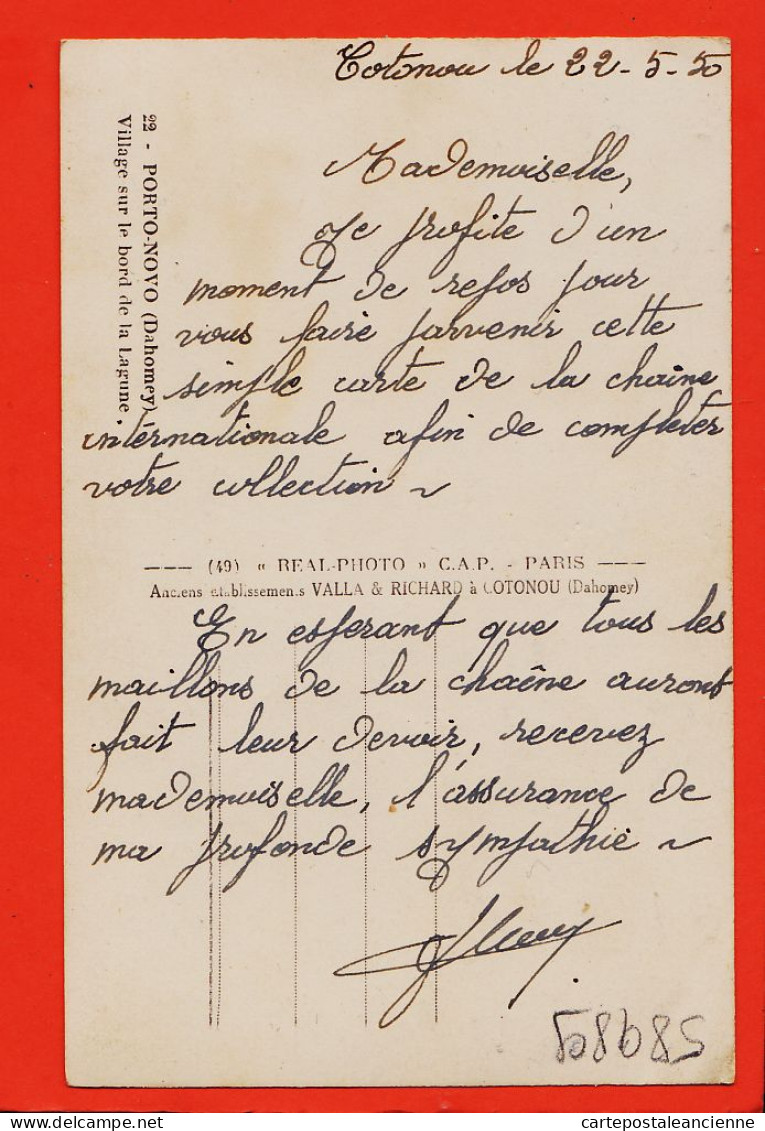 Cotonou le 22-5-50
22 - PORTO-NOVO (Dahomey)
Village sur le bord de la Lagune.
Mademoiselle,
Je profite d'un
moment de repos pour
vous faire parvenir cette
simple carte de la chaine
internationale afin de completer
votre collection ~
--- (49) « REAL-PHOTO » C.A.P. - PARIS ---
Anciens etablissements VALLA & RICHARD à COTONOU (Dahomey)
En esperant que tous les
maillons de la chaîne auront
fait leur devoir, recevez
mademoiselle, l'assurance de
ma profonde sympathie ~
delcampe.net
cartepostaleancienne